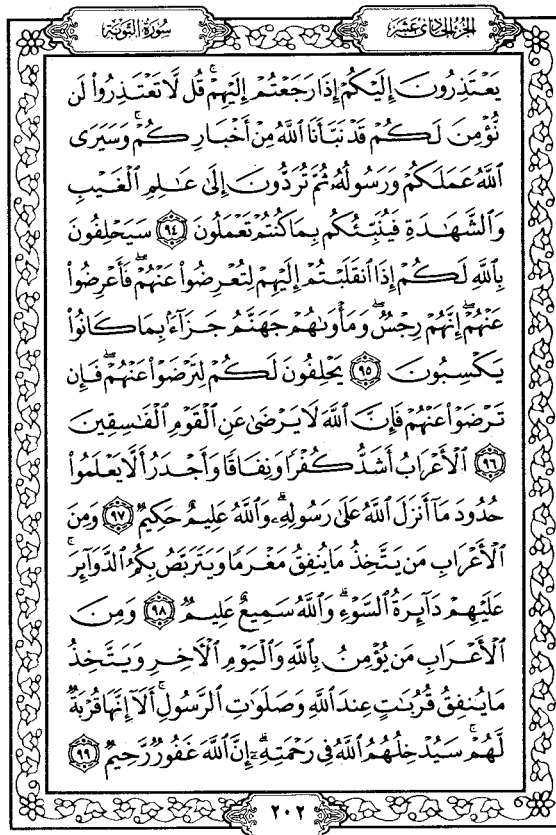 سُورَةُ التَّوْبَةِ
الجُزْءُ الحَادِى عَشَرَ
يَعْتَذِرُونَ إِلَيْكُمْ إِذَا رَجَعْتُمْ إِلَيْهِمْ ۚ قُل لَّا تَعْتَذِرُوا۟ لَن
نُّؤْمِنَ لَكُمْ قَدْ نَبَّأَنَا ٱللَّهُ مِنْ أَخْبَارِكُمْ ۚ وَسَيَرَى
ٱللَّهُ عَمَلَكُمْ وَرَسُولُهُۥ ثُمَّ تُرَدُّونَ إِلَىٰ عَـٰلِمِ ٱلْغَيْبِ
وَٱلشَّهَـٰدَةِ فَيُنَبِّئُكُم بِمَا كُنتُمْ تَعْمَلُونَ ٩٤ سَيَحْلِفُونَ
بِٱللَّهِ لَكُمْ إِذَا ٱنقَلَبْتُمْ إِلَيْهِمْ لِتُعْرِضُوا۟ عَنْهُمْ ۖ فَأَعْرِضُوا۟
عَنْهُمْ ۖ إِنَّهُمْ رِجْسٌ ۖ وَمَأْوَىٰهُمْ جَهَنَّمُ جَزَآءًۢ بِمَا كَانُوا۟
يَكْسِبُونَ ٩٥ يَحْلِفُونَ لَكُمْ لِتَرْضَوْا۟ عَنْهُمْ ۖ فَإِن
تَرْضَوْا۟ عَنْهُمْ فَإِنَّ ٱللَّهَ لَا يَرْضَىٰ عَنِ ٱلْقَوْمِ ٱلْفَـٰسِقِينَ
٩٦ ٱلْأَعْرَابُ أَشَدُّ كُفْرًا وَنِفَاقًا وَأَجْدَرُ أَلَّا يَعْلَمُوا۟
حُدُودَ مَآ أَنزَلَ ٱللَّهُ عَلَىٰ رَسُولِهِۦ ۗ وَٱللَّهُ عَلِيمٌ حَكِيمٌ ٩٧ وَمِنَ
ٱلْأَعْرَابِ مَن يَتَّخِذُ مَا يُنفِقُ مَغْرَمًا وَيَتَرَبَّصُ بِكُمُ ٱلدَّوَآئِرَ ۚ
عَلَيْهِمْ دَآئِرَةُ ٱلسَّوْءِ ۗ وَٱللَّهُ سَمِيعٌ عَلِيمٌ ٩٨ وَمِنَ
ٱلْأَعْرَابِ مَن يُؤْمِنُ بِٱللَّهِ وَٱلْيَوْمِ ٱلْـَٔاخِرِ وَيَتَّخِذُ
مَا يُنفِقُ قُرُبَـٰتٍ عِندَ ٱللَّهِ وَصَلَوَٰتِ ٱلرَّسُولِ ۚ أَلَآ إِنَّهَا قُرْبَةٌ
لَّهُمْ ۚ سَيُدْخِلُهُمُ ٱللَّهُ فِى رَحْمَتِهِۦٓ ۗ إِنَّ ٱللَّهَ غَفُورٌ رَّحِيمٌ ٩٩
٢٠٢